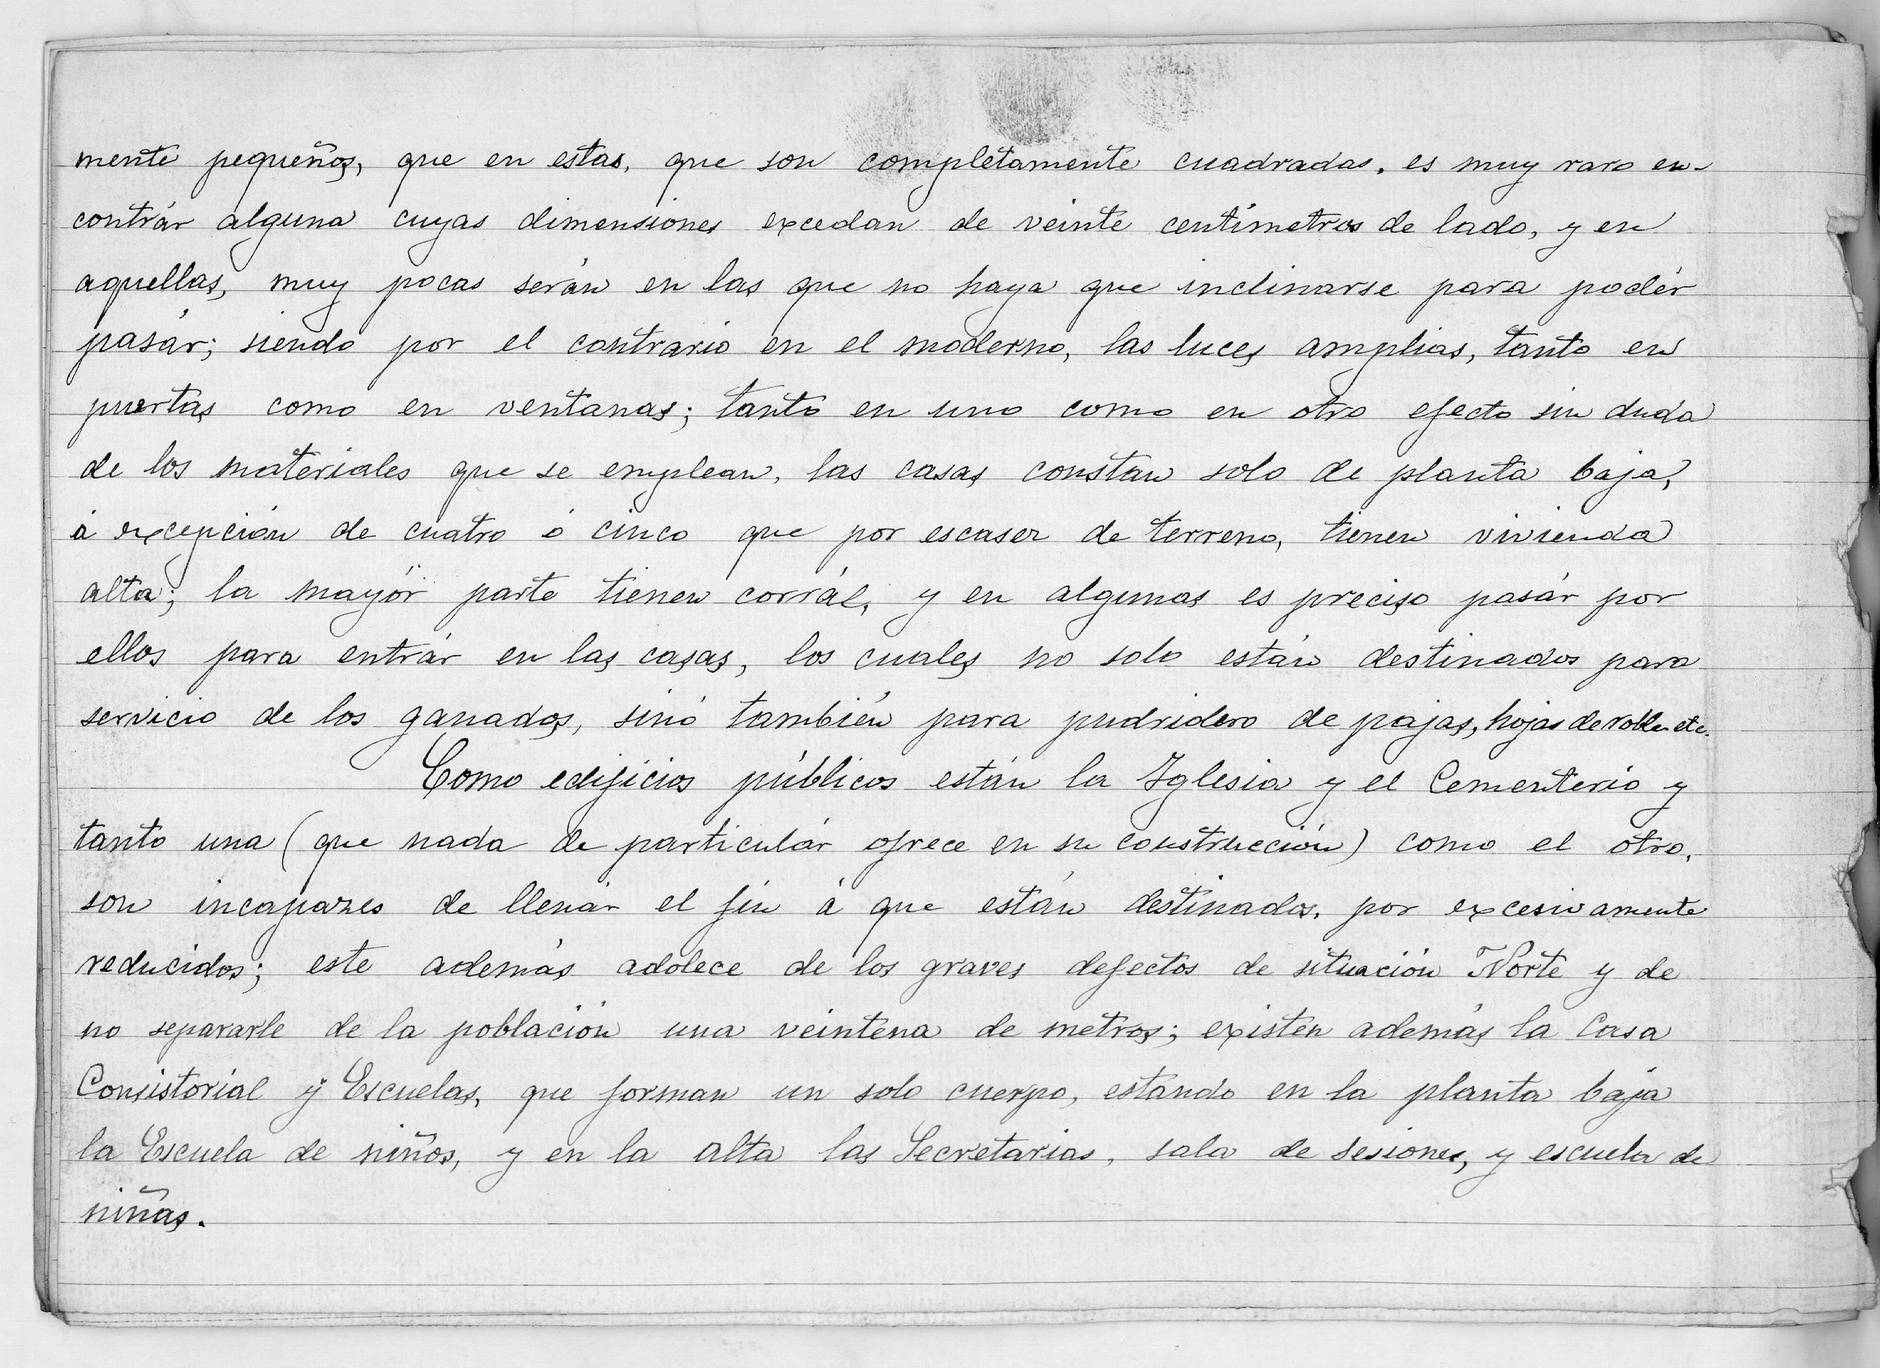 mente pequeños, que en estas, que son completamente cuadradas, es muy raro en-
contrár alguna cuyas dimensiones excedan de veinte centímetros de lado, y en
aquellas, muy pocas serán en las que no haya que inclinarse para podér
pasár; siendo por el contrario en el moderno, las luces amplias, tanto en
puertas como en ventanas; tanto en uno como en otro efecto sin duda
de los materiales que se emplean, las casas constan solo de planta baja,
á excepción de cuatro ó cinco que por escasez de terreno, tienen vivienda
alta; la mayór parte tienen corrál, y en algunas es preciso pasár por
ellos para entrár en las casas, los cuales no solo están destinados para
servicio de los ganados, sinó también para pudridero de pajas, hojas de roble etc.
Como edificios públicos están la Iglesia y el Cementerio y
tanto una (que nada de particulár ofrece en su construcción) como el otro,
son incapazes de llenár el fín á que están destinados, por excesivamente
reducidos; este además adolece de los graves defectos de situación Norte y de
no separarle de la población una veintena de metros; existen además la Casa
Consistorial y Escuelas, que forman un solo cuerpo, estando en la planta baja
la Escuela de niños, y en la alta las Secretarias, sala de sesiones, y escuela de
niñas.